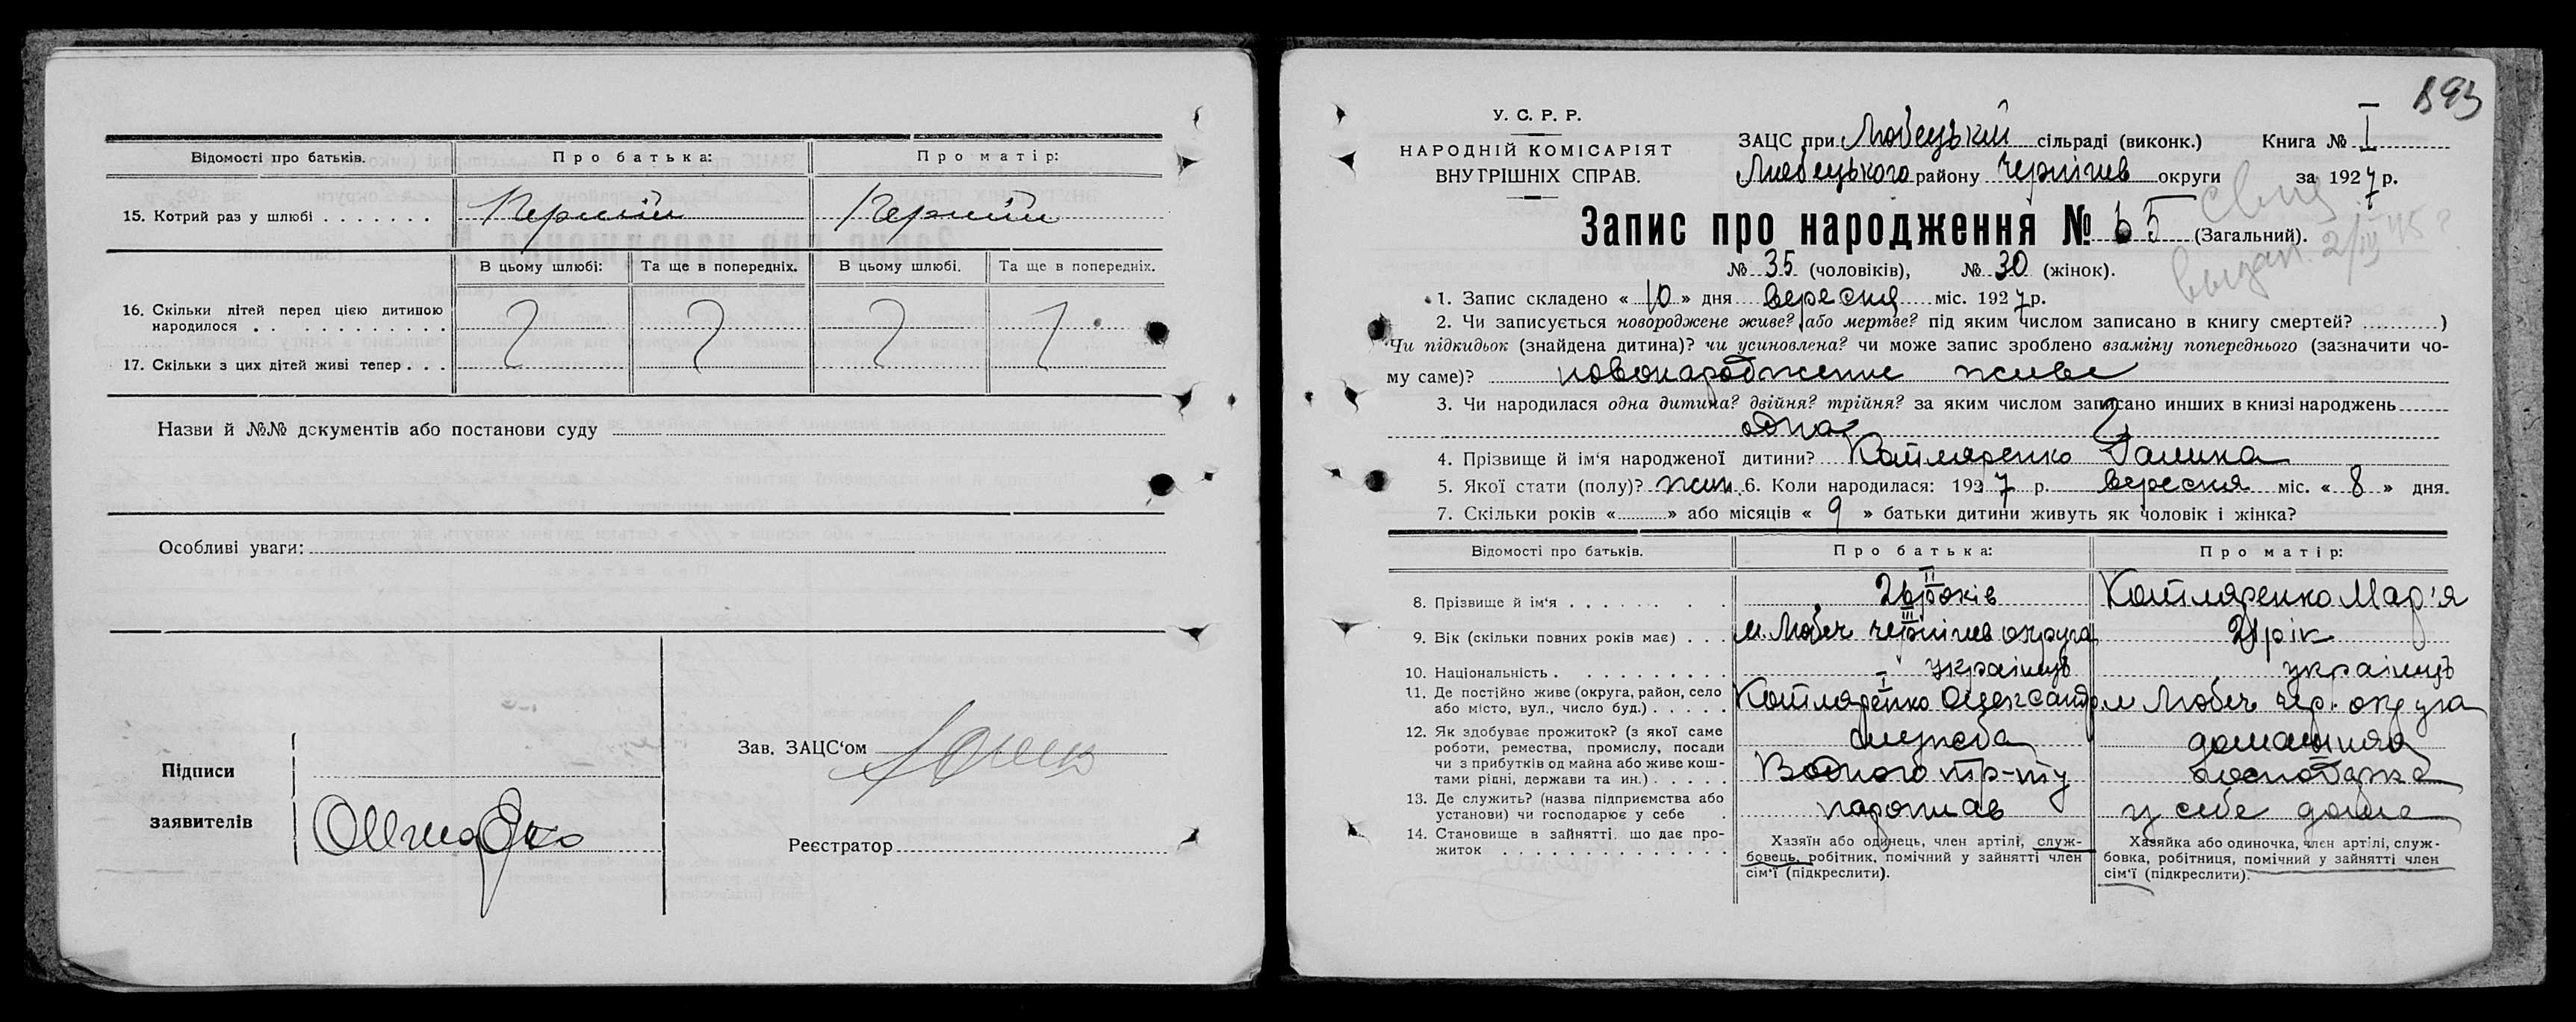 Відомості про батьків. Про батька: Про матір:
15. Котрий раз у шлюбі . . . . . . . Перший Перший
В цьому шлюбі: Та ще в попередніх. В цьому шлюбі. Та ще в попередніх.
16. Скільки дітей перед цією дитиною
народилося . . . . . . . . . . .
17. Скільки з цих дітей живі тепер . . .
Назви й №№ документів або постанови суду
Особливі уваги:
Підписи
заявителів
Зав. ЗАЦС‘ом
Реєстратор
893
У. С. Р. Р.
НАРОДНІЙ КОМІСАРІЯТ
ВНУТРІШНІХ СПРАВ.
ЗАЦС при Любецькій сільраді (виконк.) Книга № I
Любецького району Чернігів округи за 1927 р.
Запис про народження № 65 (Загальний).
№ 35 (чоловіків), № 30 (жінок).
1. Запис складено « 10 » дня вересня міс. 1927 р.
2. Чи записується новороджене живе? або мертве? під яким числом записано в книгу смертей? ...........)
Чи підкидьок (знайдена дитина)? чи усиновлена? чи може запис зроблено взаміну попереднього (зазначити чо-
му саме)? новонароджене живе
3. Чи народилася одна дитина? двійня? трійня? за яким числом записано инших в книзі народжень
одна
4. Прізвище й ім‘я народженої дитини? Котляренко Галина
5. Якої стати (полу)? жін. 6. Коли народилася: 1927 р. вересня міс. « 8 » дня.
7. Скільки років «..........» або місяців « 9 » батьки дитини живуть як чоловік і жінка?
Відомості про батьків. Про батька: Про матір:
8. Прізвище й ім‘я . . . . . . . . II 26 років Котляренко Мар'я
9. Вік (скільки повних років має) . . . III м. Любеч Чернігів округа 21 рік
10. Національність . . . . . . . . . українець українць
11. Де постійно живе (округа, район, село
або місто, вул., число буд.) . . . . . I Котляренко Олександр м Любеч Чер. округа
12. Як здобуває прожиток? (з якої саме
роботи, ремества, промислу, посади
чи з прибутків од майна або живе кош-
тами рідні, держави та ин.) . . . . . служба домашняя господарка
13. Де служить? (назва підприємства або
установи) чи господарює у себе . Водного тр-ту пароплав у себе дома
14. Становище в зайнятті, що дає про-
житок . . . . . . . . . . . . . .
Хазяїн або одинець, член артілі, служ-
бовець, робітник, помічний у зайнятті член
сім‘ї (підкреслити).
Хазяйка або одиночка, член артілі, служ-
бовка, робітниця, помічний у зайнятті член
сім‘ї (підкреслити).